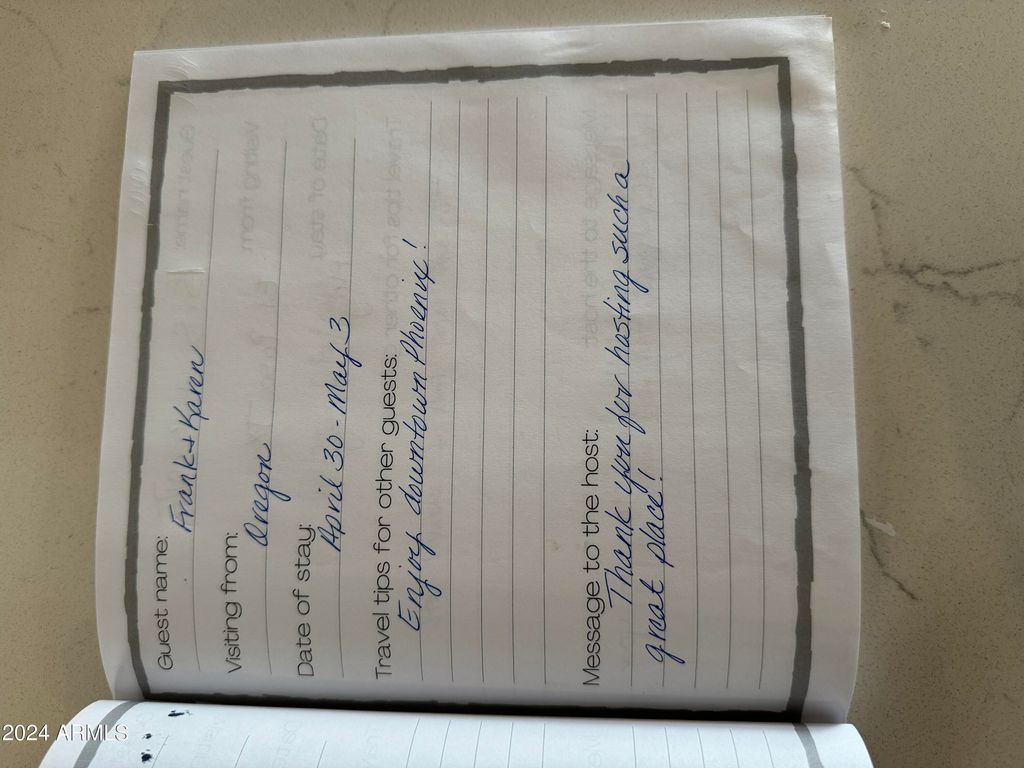 Guest name:
Frank + Karen
Visiting from:
Oregon
Date of stay:
April 30 - May 3
Travel tips for other guests:
Enjoy downtown Phoenix!
Message to the host:
Thank you for hosting such a
great place!
2024 ARMLS